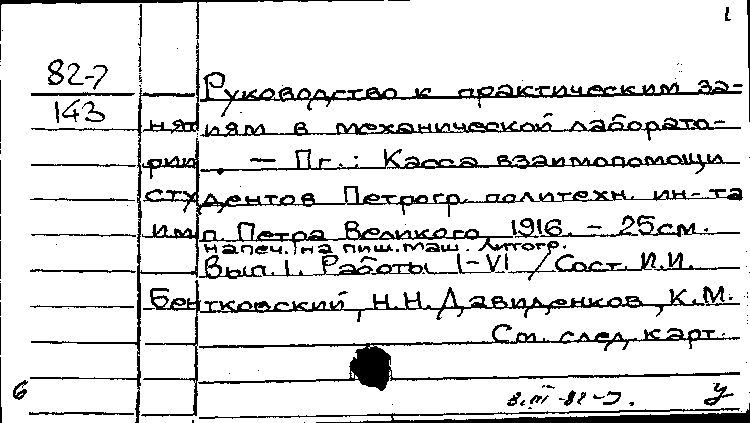 1
82-7
143
Руководство к практическим за-
нятиям в механической лаборато-
рии. — Пг.: Касса взаимопомощи
студентов Петрогр. политехн. ин-та
имп. Петра Великого, 1916. - 25см.
напеч. на пиш. маш. Литогр.
Вып. 1. Работы I-VI / Сост. И.И.
Бентковский, Н.Н. Давиденков, К.М.
См. след. карт.
6
8.III-82-7.
У